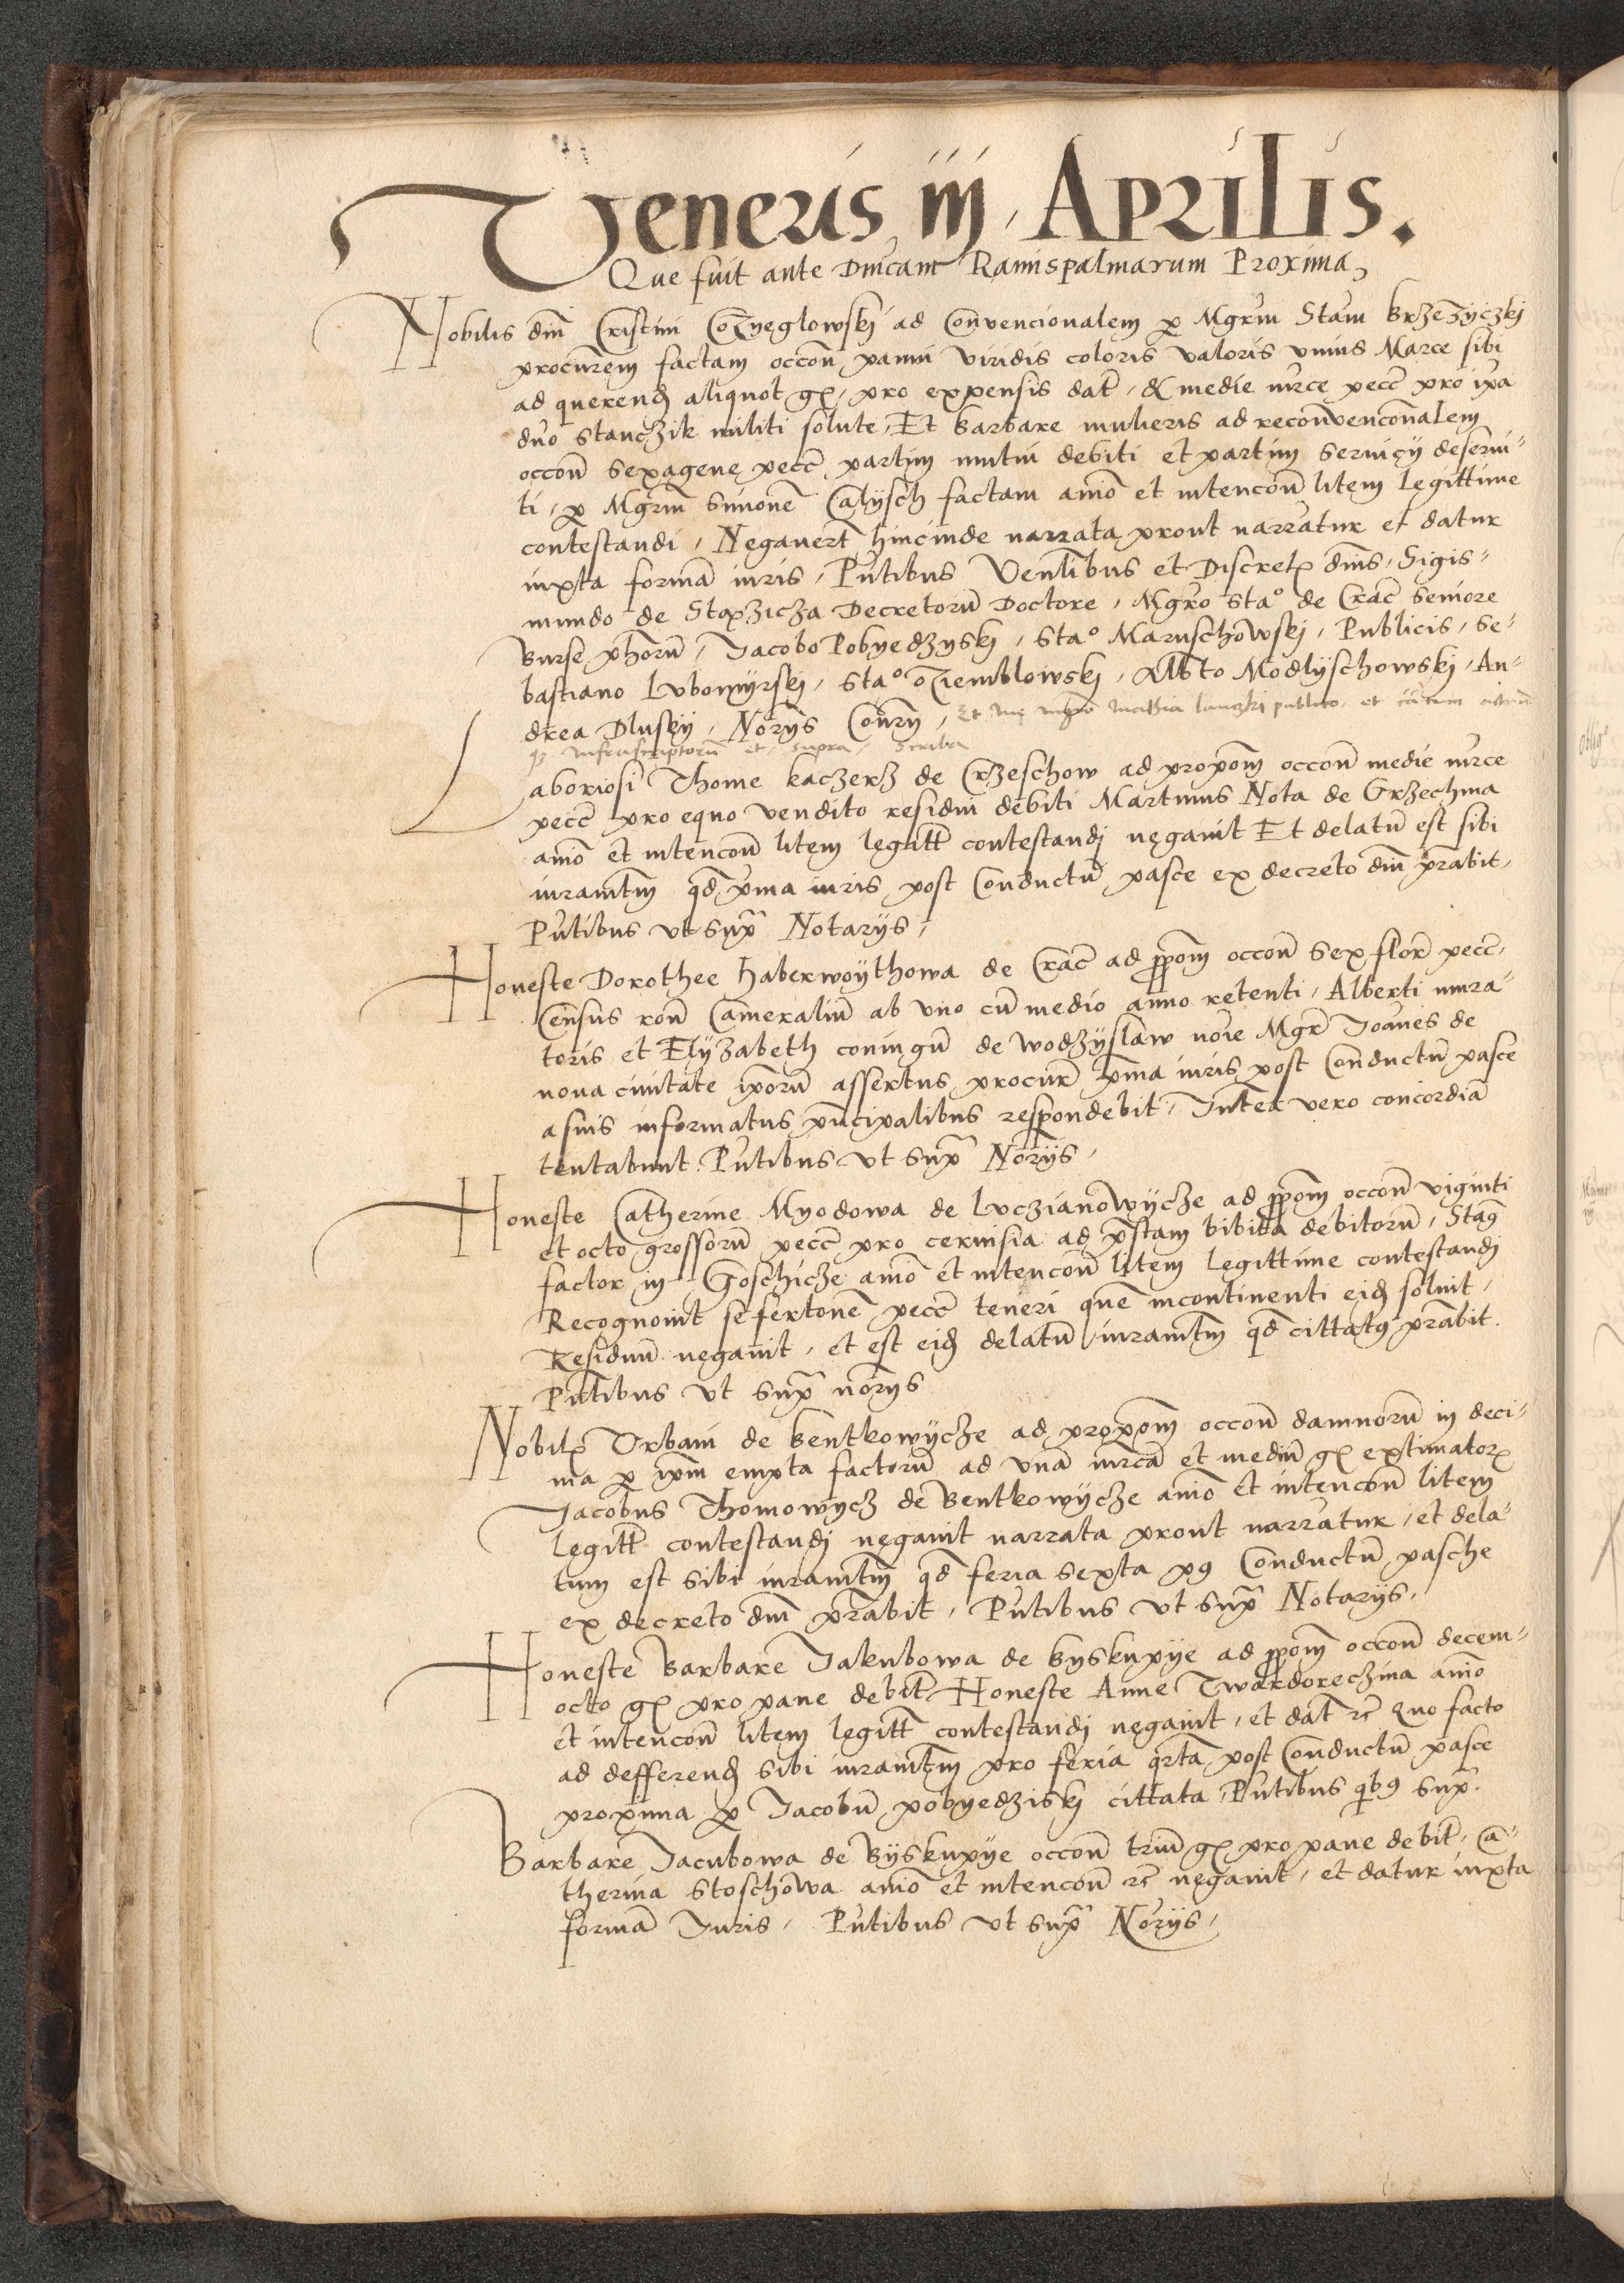 Veneris iij Aprilis.
Que fuit ante Dnicam Ramispalmarum Proxima
Nobilis dnī Cristini Coczyeglowskj ad Convencionalem p Mgrum Stam Brzezyczkj
procurem factam occoñ panni viridis coloris valoris vnius Marce sibi
ad querend aliquot gr, pro expensis dat, & medie mrce pecc pro ipa
duo Stanczik militi solute, Et Barbare mulieris ad reconvenconalem
occoñ sexagene pecc partim mutui debiti et partim servicy deservi-
ti, p Mgrm Simonē Calysch factam amō et intencoñ litem legittime
contestandi, Negavert hincinde narrata prout narratur et datur
iuxta formā iuris, Pñtibus Ventibus et Discret dnis, Sigis-
mundo de Stazicza Decretorū Doctore, Mgro Stao de Crac seniore
Burse phorū, Jacobo Pobyedzyskj, Stao Maruschowskj, Publicis, Se-
bastiano Lubomyrskj, Stao oziemblowskj, Albto Modlyschowskj, An-
drea Dluskij, Norijs Conry, Et me mgro Mathia lanczki publico, et
infrascriptorū et supra, scriba
Laboriosi Thome kaczerz de Crzeschow ad propom occoñ medie mrce
pecc pro equo vendito residui debiti Martinus Nota de Grzechina
amō et intencoñ litem legitt contestandj negavit Et delatū est sibi
iuramtm qd pma iuris post Conductū pasce ex decreto dnī prabit,
Pñtibus vt supra Notarijs,
Honeste Dorothee Haberwoythowa de Crac ad ppom occoñ sex flor pecc,
Census roñ Cameraliū ab vno cū medio anno retenti, Alberti mura-
toris et Elyzabeth coniugū de wodzyslaw noie Mgr Joañes de
nova civitate ipsorū assertus procur pma iuris post Conductū pasce
a suis informatus pncipalibus respondebit, Intea vero concordiā
tentabunt. Pñtibus vt supra Norijs,
Honeste Catherine Myodowa de Luczianowycze ad ppom occoñ viginti
et octo grossorū pecc pro cervisia ad pstam bibita debitorū, Sta9
factor in Goschicze amō et intencoñ litem legittime contestandj
Recognovit se fertonē pecc teneri quē incontinenti eid solvit,
Residuū negavit, et est eid delatū iuramtm qd cittat9 prabit.
Pñtibus vt supra norijs
Nobil Vrbani de Bentkowycze ad propom occoñ damnorū in deci-
ma p ipm empta factorū ad vnā mrcā et mediū gr extimator
Jacobus Thomowycz de Bentkowycze amō et intencoñ litem
legitt contestandj negavit narrata prout narratur, et dela-
tum est sibi iuramtm qd feria sexta p9 Conductū pasche
ex decreto dnī prabit, Pñtibus vt supra Notarijs,
Honeste Barbare Jakubowa de Byskupye ad ppom occoñ decem-
octo gr pro pane debit Honeste Anne Twardoreczina amō
et intencoñ litem legitt contestandj negavit, et dat rc Quo facto
ad defferend sibi iuramtm pro feria qrta post Conductū pasce
proxima p Jacobū pobyedziskj cittata, Pñtibus qb9 supra.
Barbare Jacubowa de Byskupye occoñ triū gr pro pane debit, Ca-
therina Stoschowa amō et intencoñ rc negavit, et datur iuxta
formā Juris, Pñtibus vt supra Norijs,